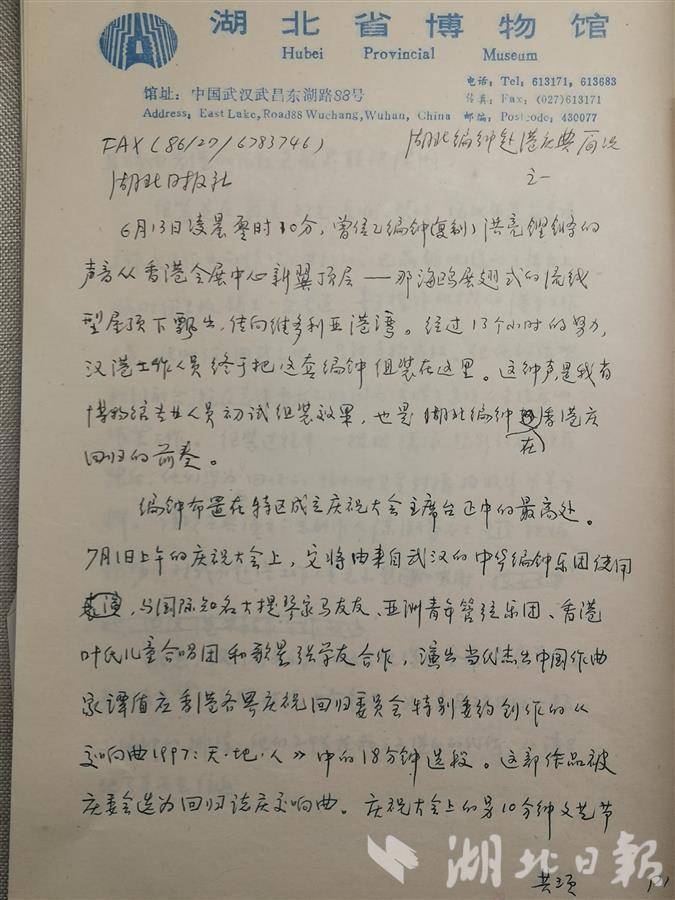 湖北省博物馆
Hubei Provincial Museum
电话: Tel: 613171, 613683
馆址: 中国武汉武昌东湖路88号
传真: Fax: (027)613171
Address: East Lake, Road88 Wuchang, Wuhan, China 邮编: Postcode: 430077
FAX(86/27/6783746) 湖北编钟赴港庆典简况
湖北日报社 之一
6月13日凌晨零时10分，曾侯乙编钟(复制)洪亮铿锵的
声音从香港会展中心新翼顶层——那海鸥展翅式的流线
型屋顶下飘出，传向维多利亚港湾。经过13个小时的努力，
汉港工作人员终于把这套编钟组装在这里。这钟声是我省
博物馆专业人员初试组装效果，也是湖北编钟在香港庆
回归的前奏。
编钟布置在特区成立庆祝大会主席台正中的最高处。
7月1日上午的庆祝大会上，它将由来自武汉的中华编钟乐团使用
表演，与国际知名大提琴家马友友、亚洲青年管弦乐团、香港
叶氏儿童合唱团和歌星张学友合作，演出当代杰出中国作曲
家谭盾应香港各界庆祝回归委员会特别委约创作的《
交响曲1997：天·地·人》中的18分钟选段。这部作品被
庆委会选为回归志庆交响曲。庆祝大会上的另10分钟文艺节
共3页
湖北日报